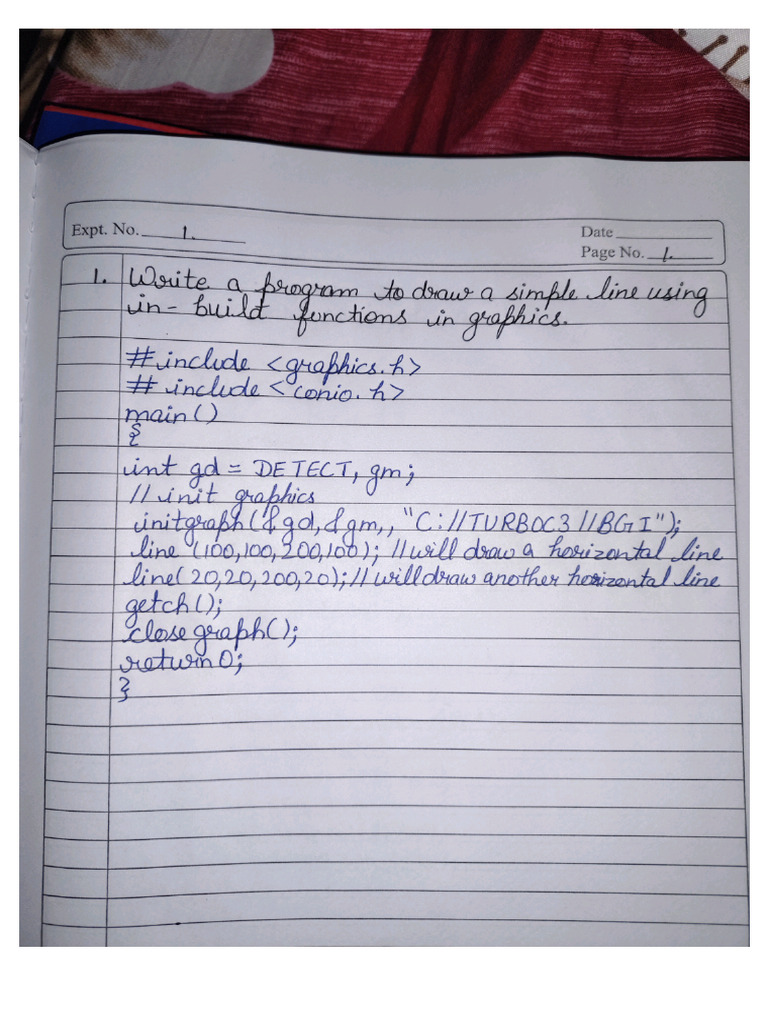 Expt. No. 1.
Date
Page No. 1.
1. Write a program to draw a simple line using
in-build functions in graphics.
#include <graphics.h>
# include <conio.h>
main()
{
int gd = DETECT, gm;
// init graphics
initgraph(&gd, &gm,, "C://TURBOC3//BGI");
line (100,100,200,100); //will draw a horizontal line
line(20,20,200,20); // will draw another horizontal line
getch();
closegraph();
return 0;
}